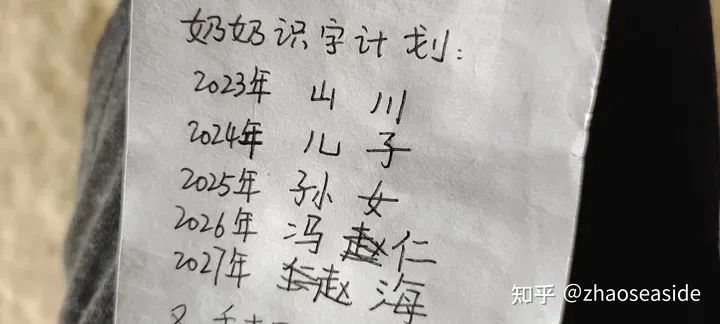 奶奶识字计划:
2023年 山 川
2024年 儿 子
2025年 孙 女
2026年 冯 仁
2027年 赵 海
知乎 @zhaoseaside